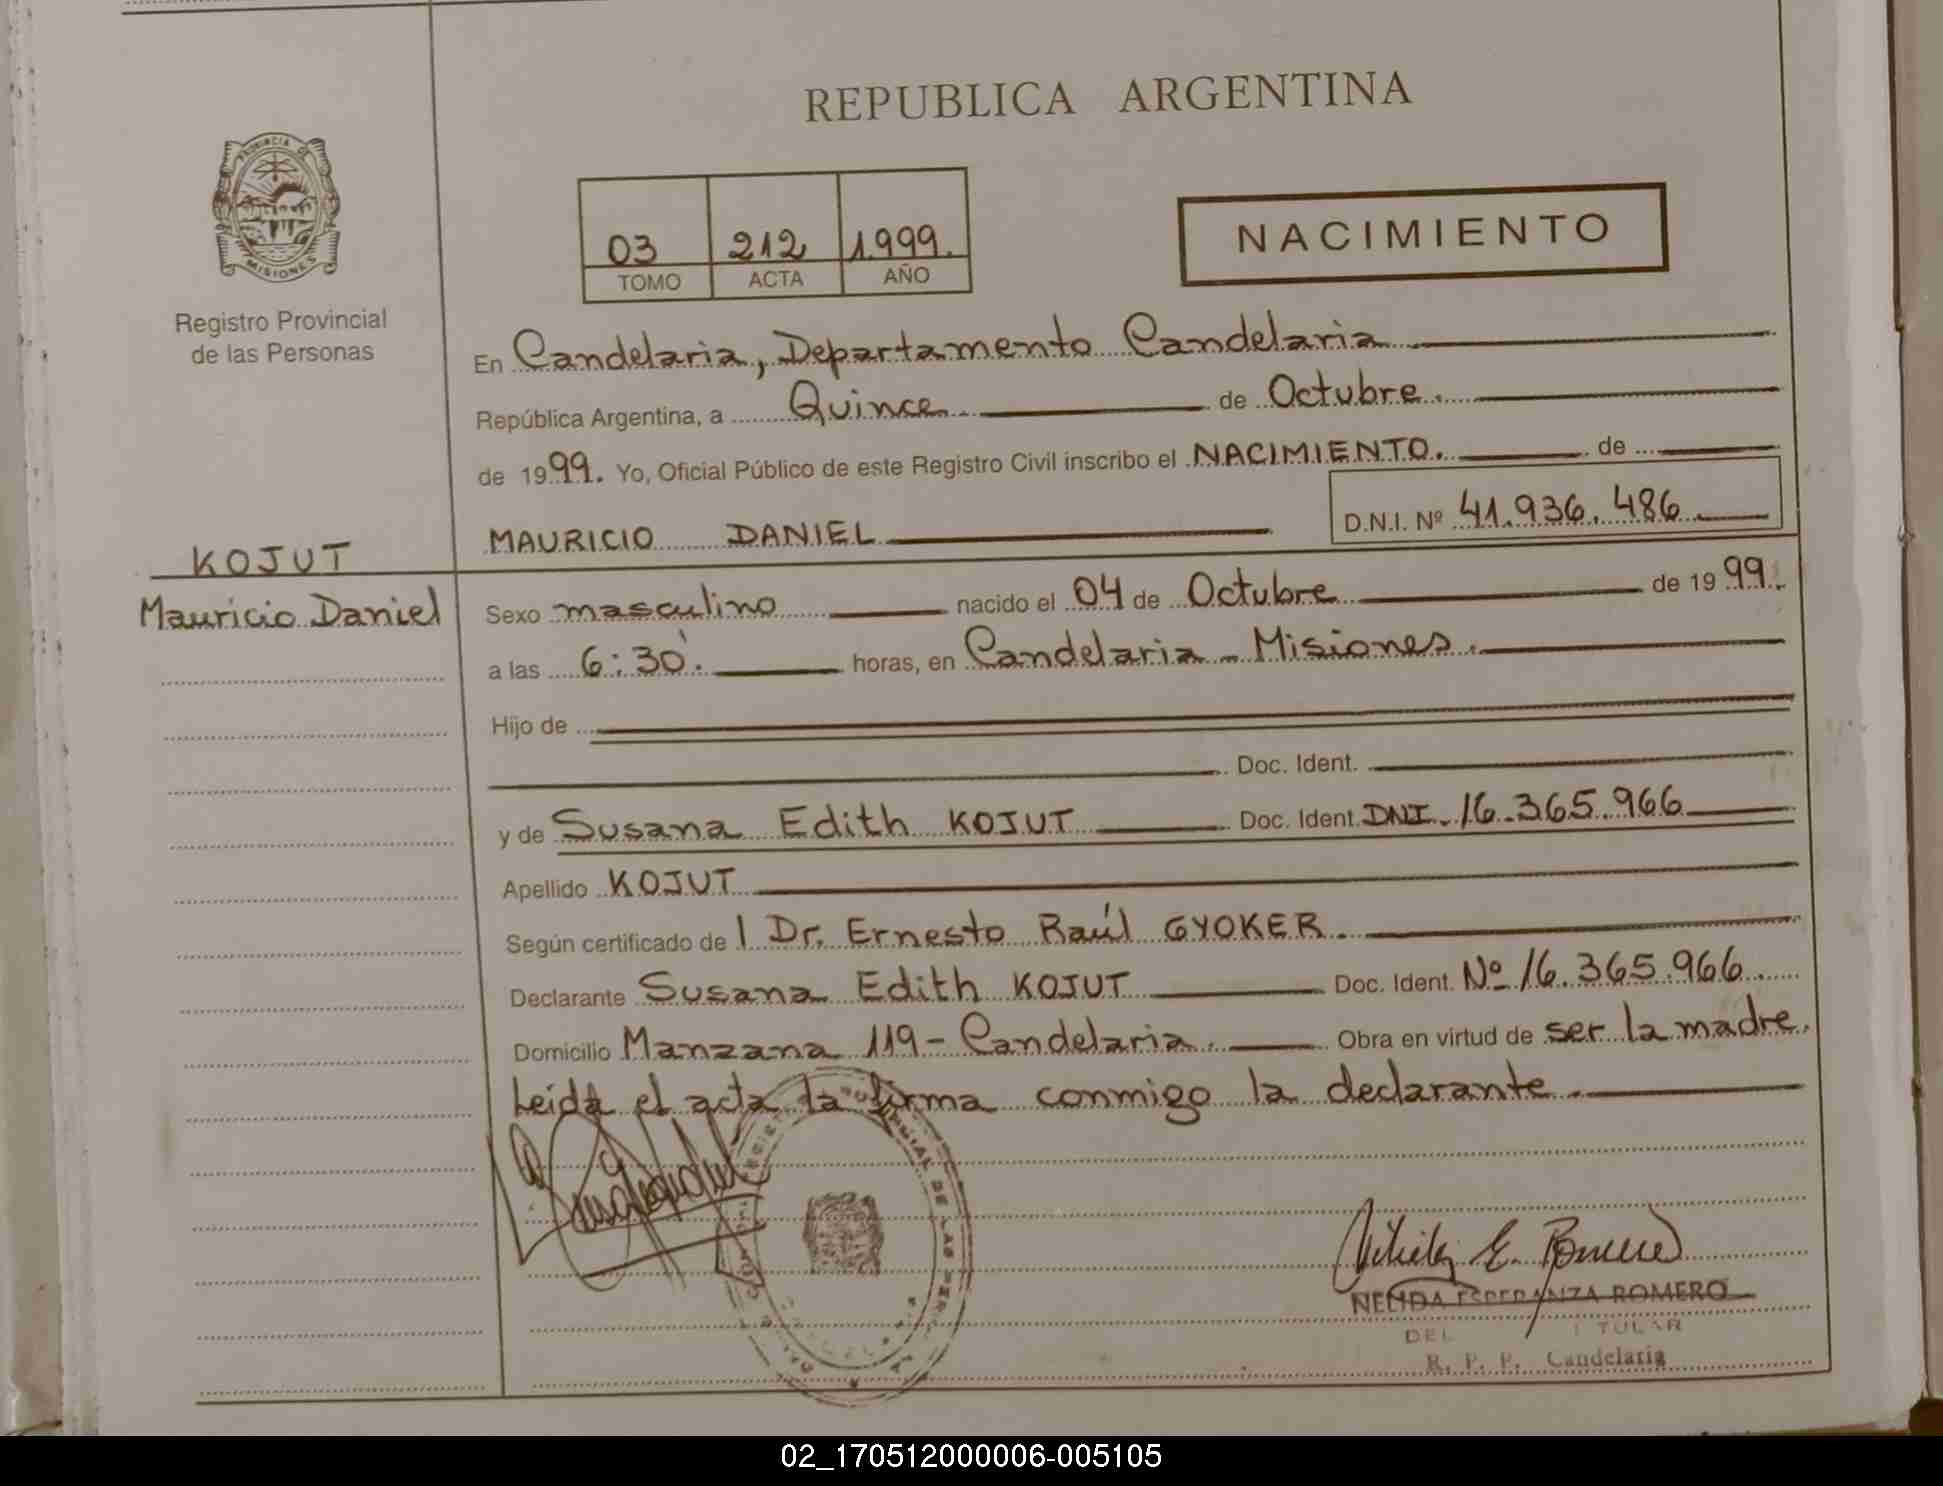 REPUBLICA ARGENTINA
PROVINCIA DE
MISIONES
Registro Provincial
de las Personas
03 212 1.999.
TOMO ACTA AÑO
NACIMIENTO
En Candelaria, Departamento Candelaria
República Argentina, a Quince de Octubre.
de 1999. Yo, Oficial Público de este Registro Civil inscribo el NACIMIENTO. de
MAURICIO DANIEL D.N.I. Nº 41.936.486
KOJUT
Mauricio Daniel
Sexo masculino nacido el 04 de Octubre de 1999.
a las 6:30'. horas, en Candelaria - Misiones.
Hijo de
Doc. Ident.
y de Susana Edith KOJUT Doc. Ident. DNI. 16.365.966
Apellido KOJUT
Según certificado de l Dr. Ernesto Raúl GYOKER.
Declarante Susana Edith KOJUT Doc. Ident. Nº 16.365.966
Domicilio Manzana 119 - Candelaria. Obra en virtud de ser la madre.
Leida el acta la firma conmigo la declarante.
NELIDA ESPERANZA ROMERO
R. P. P. Candelaria
02_170512000006-005105